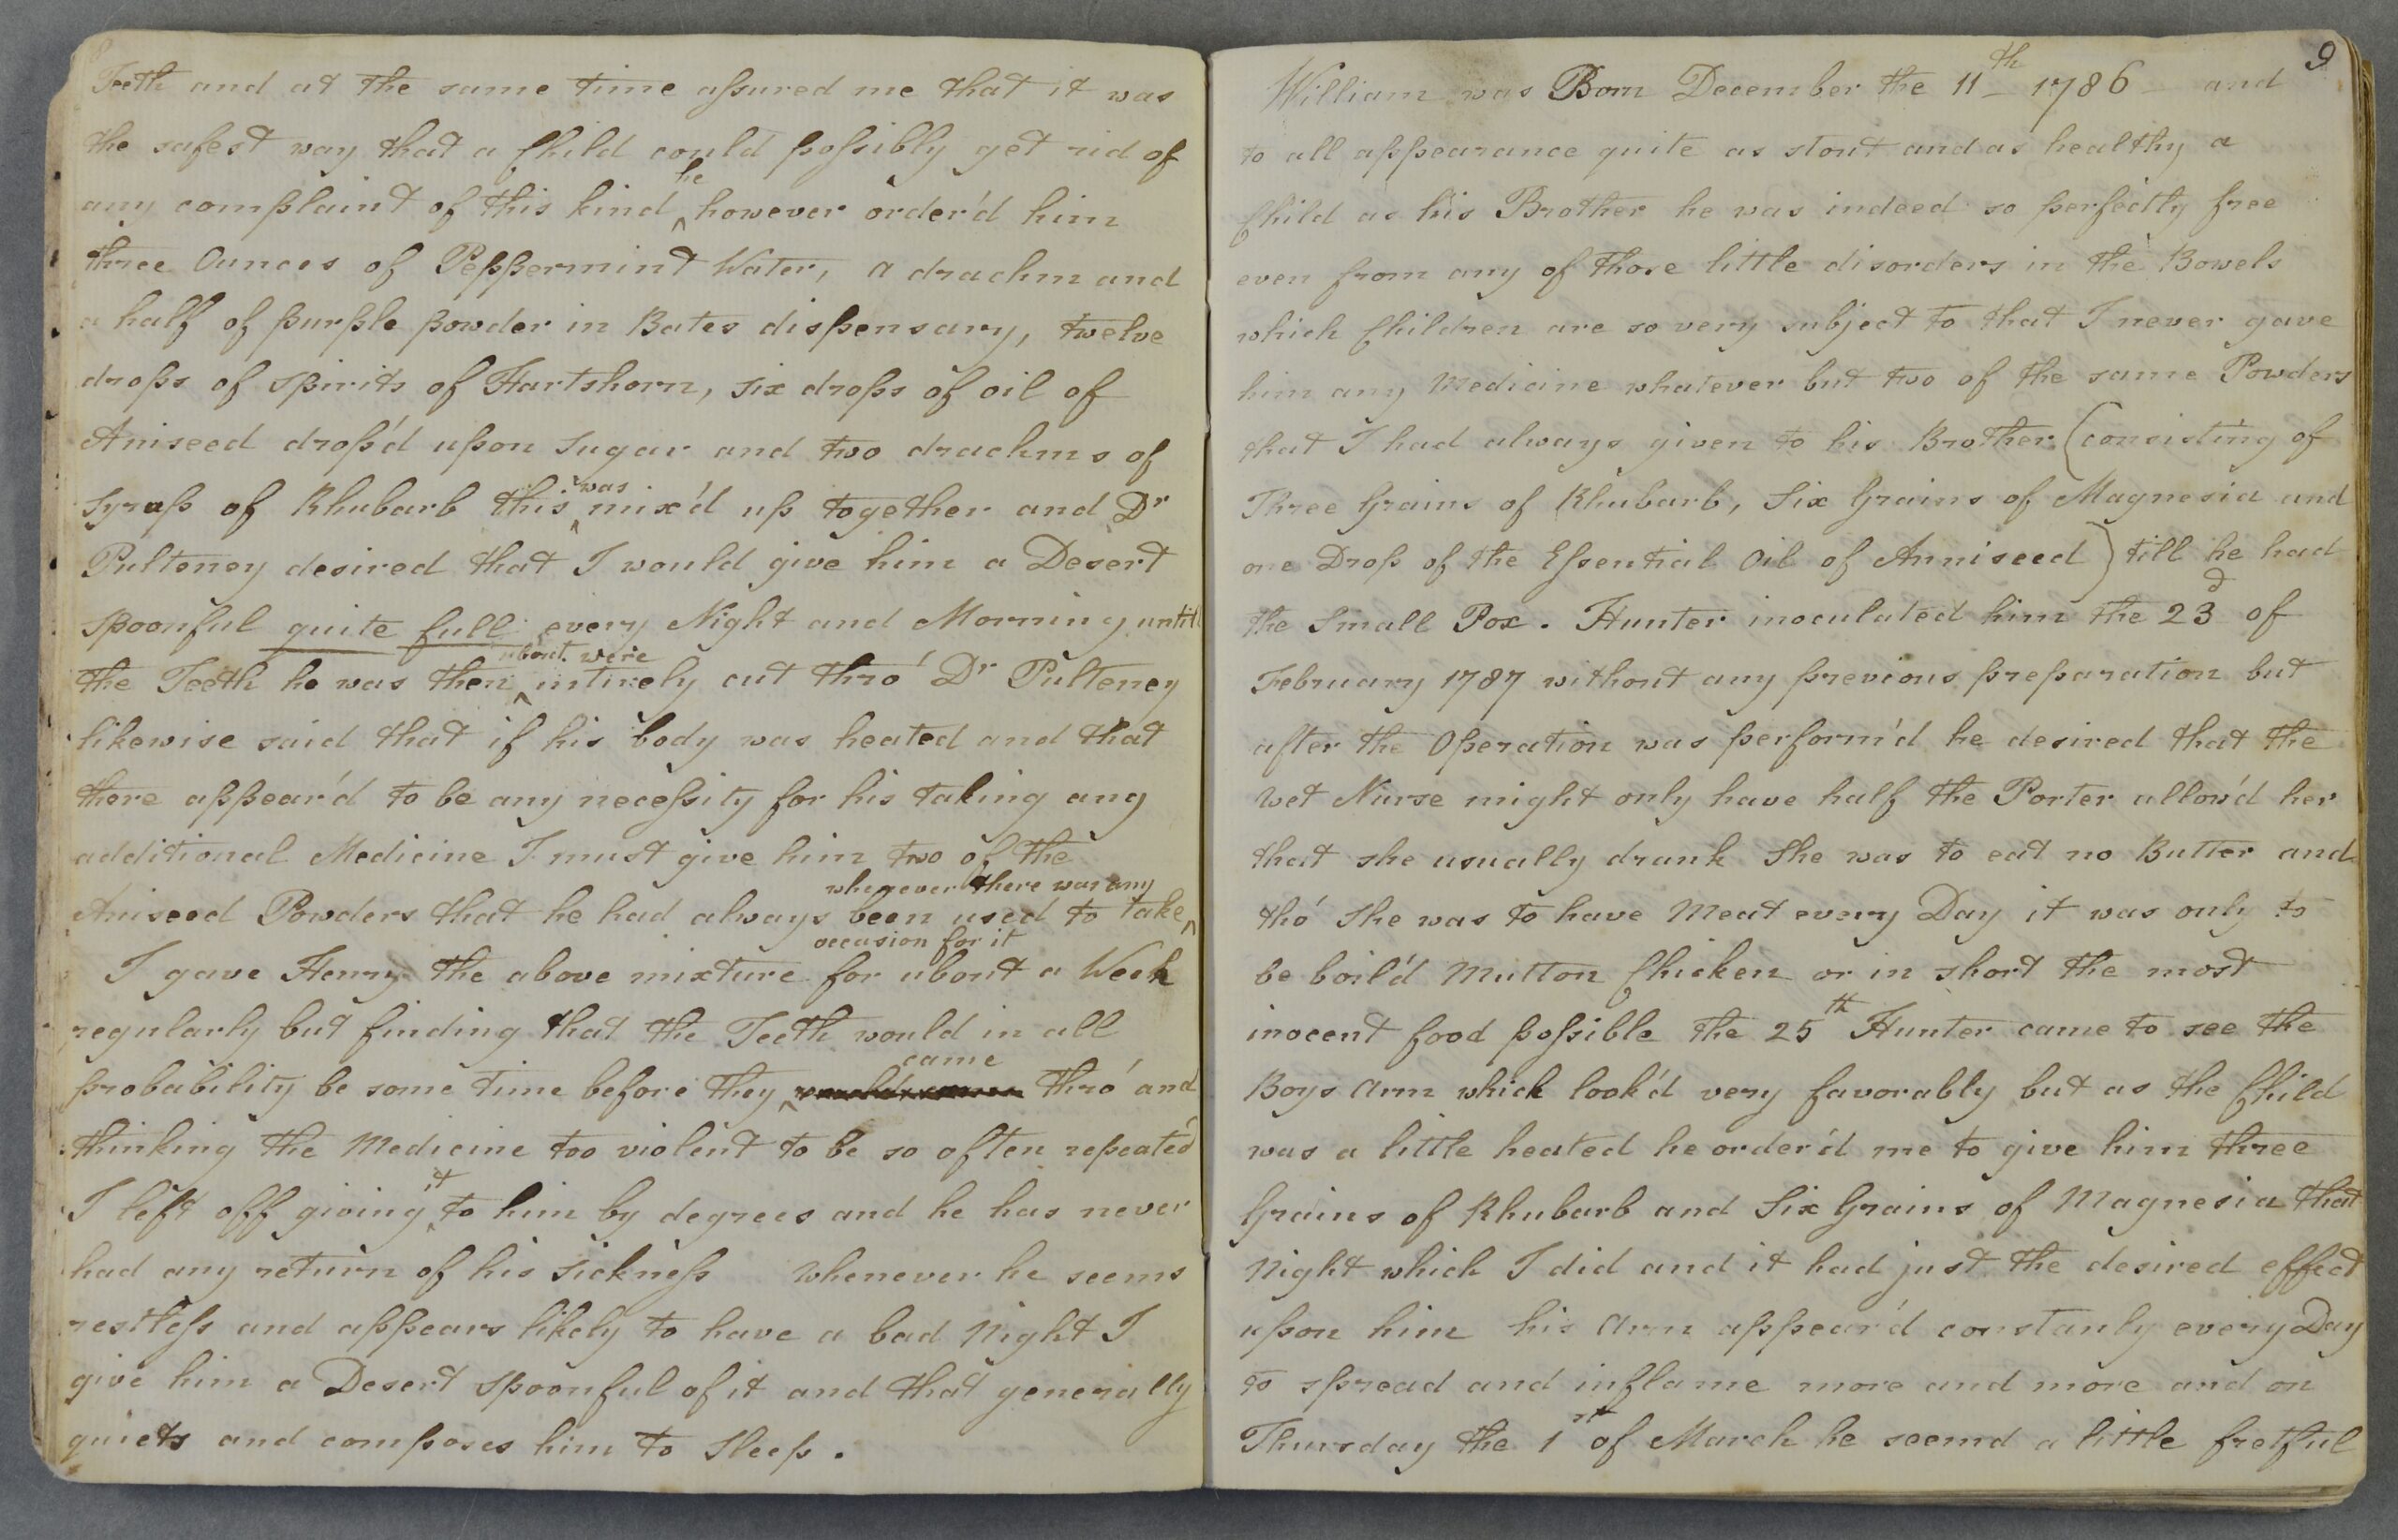 8
Teeth and at the same time aſsured me that it was
the safest way that a Child could poſsibly get rid of
any complaint of this kind ^he however order'd him
three Ounces of Peppermint Water, a drachm and
a half of purple powder in Bates dispensary, twelve
drops of spirits of Hartshorn, six drops of oil of
Aniseed drop'd upon Sugar and two drachms of
Syrup of Rhubarb this ^was mix'd up together and Dr
Pulteney desired that I would give him a Desert
spoonful quite full every Night and Morning until
the Teeth he was then ^about were intirely cut thro' Dr Pulteney
likewise said that if his body was heated and that
there appear'd to be any neceſsity for his taking any
additional Medicine I must give him two of the
Aniseed Powders that he had always been used to take ^whenever there was any
occasion for it
I gave Henry the above mixture for about a Week
regularly but finding that the Teeth would in all
probability be some time before they ^came thro' and
thinking the Medicine too violent to be so often repeated
I left off giving ^it to him by degrees and he has never
had any return of his Sickneſs Whenever he seems
restleſs and appears likely to have a bad Night I
give him a Desert spoonful of it and that generally
quiets and composes him to Sleep.
9
William was Born December the 11th 1786 and
to all appearance quite as stout and as healthy a
Child as his Brother he was indeed so perfectly free
even from any of those little disorders in the Bowels
which Children are so very subject to that I never gave
him any Medicine whatever but two of the same Powders
that I had always given to his Brother (consisting of
Three Grains of Rhubarb, Six Grains of Magnesia and
one Drop of the Eſsential Oil of Anniseed) till he had
the Small Pox. Hunter inoculated him the 23d of
February 1787 without any previous preparation but
after the Operation was perform'd he desired that the
Wet Nurse might only have half the Porter allow'd her
that she usually drank She was to eat no Butter and
tho' She was to have Meat every Day it was only to
be boil'd Mutton Chicken or in short the most
inocent food poſsible the 25th Hunter came to see the
Boys Arm which look'd very favorably but as the Child
was a little heated he order'd me to give him three
Grains of Rhubarb and Six Grains of Magnesia that
Night which I did and it had just the desired effect
upon him his Arm appear'd constanly every Day
to spread and inflame more and more and on
Thursday the 1st of March he seemd a little fretful